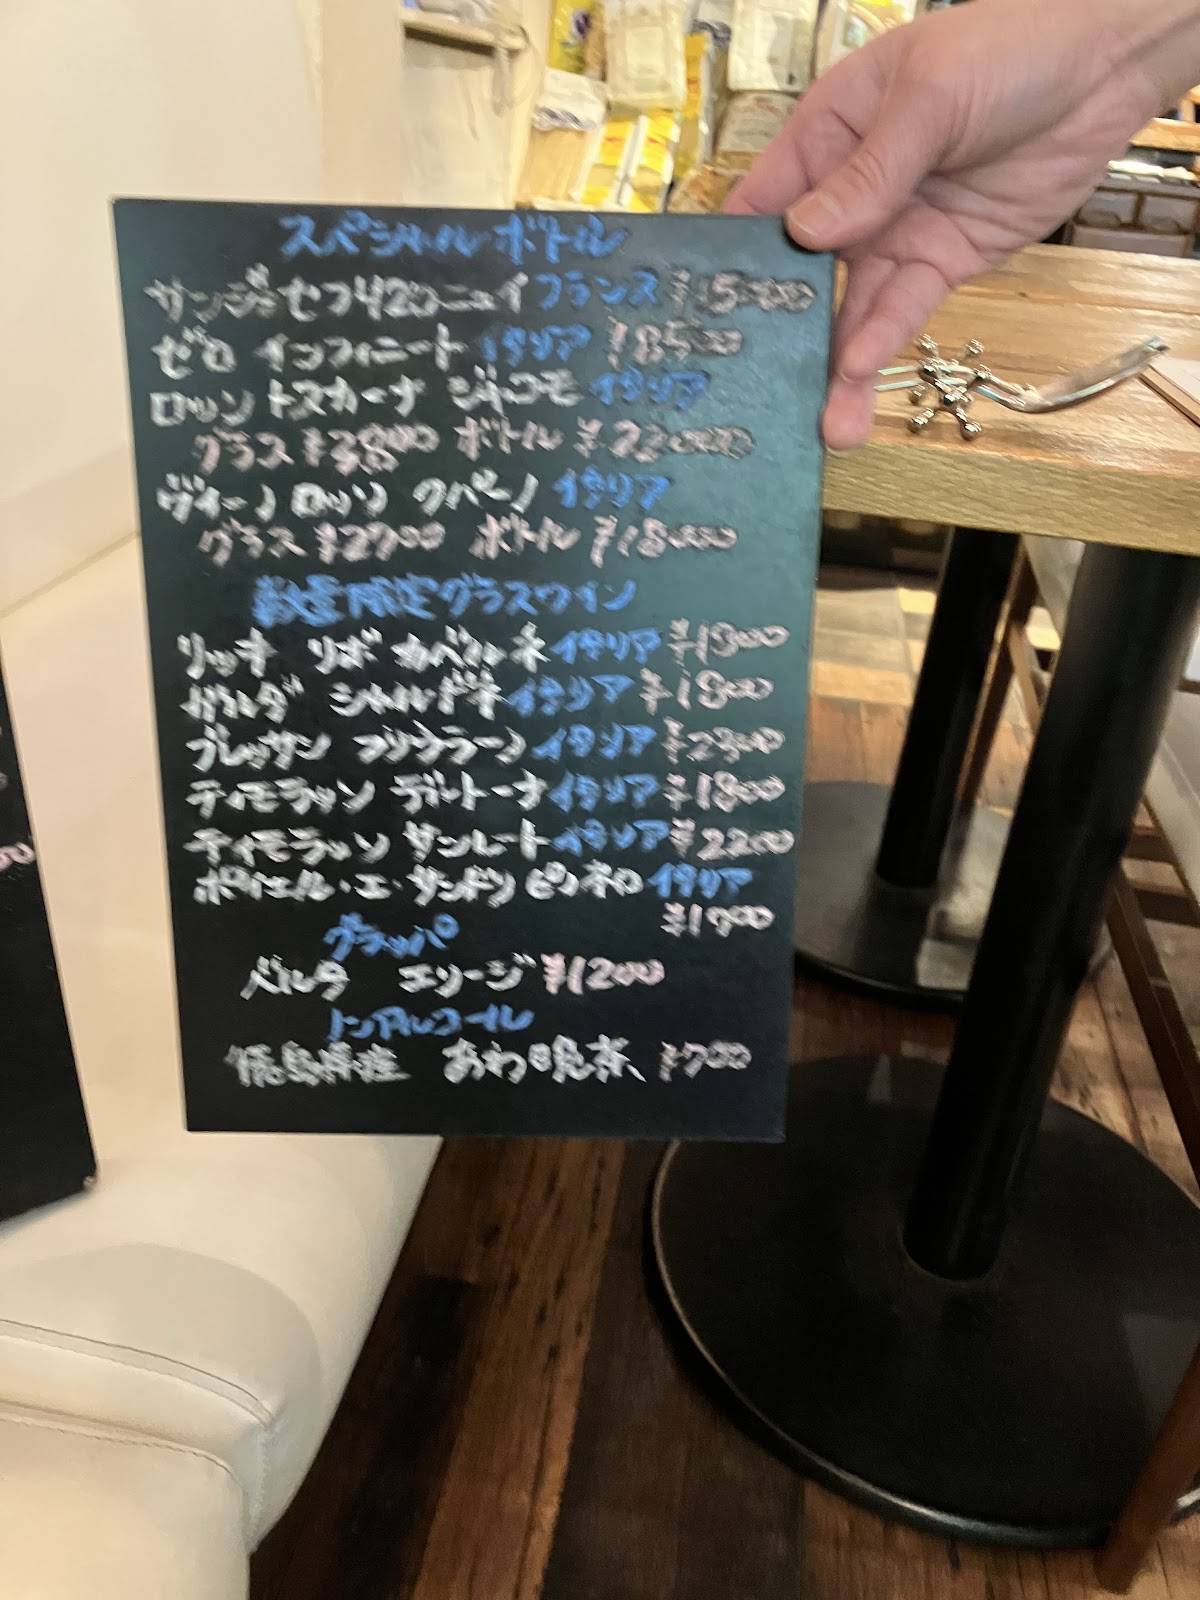 スペシャルボトル
サンジョセフ420ニュイ フランス ¥15000
ゼロ インフィニート イタリア ¥8500
ロッソ トスカーナ ジャコモ イタリア
グラス ¥3800 ボトル ¥22000
ヴィーノ ロッソ クパーノ イタリア
グラス ¥2700 ボトル ¥18000
数量限定グラスワイン
リッキ リボ カベルネ イタリア ¥1300
ガルダ シャルドネ イタリア ¥1800
ブレッサン プリウラーノ イタリア ¥2300
ティモラッソ デルトーナ イタリア ¥1800
ティモラッソ サンレート イタリア ¥2200
ポイエル・エ・サンドリ ピノネロ イタリア
¥1900
グラッパ
ベルタ エリージ ¥1200
ノンアルコール
徳島県産 あわ晩茶 ¥700